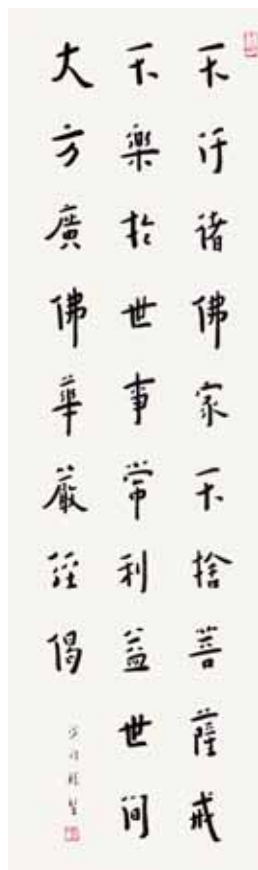 不汙諸佛家不捨菩薩戒
不樂於世事常利益世間
大方廣佛華嚴經偈